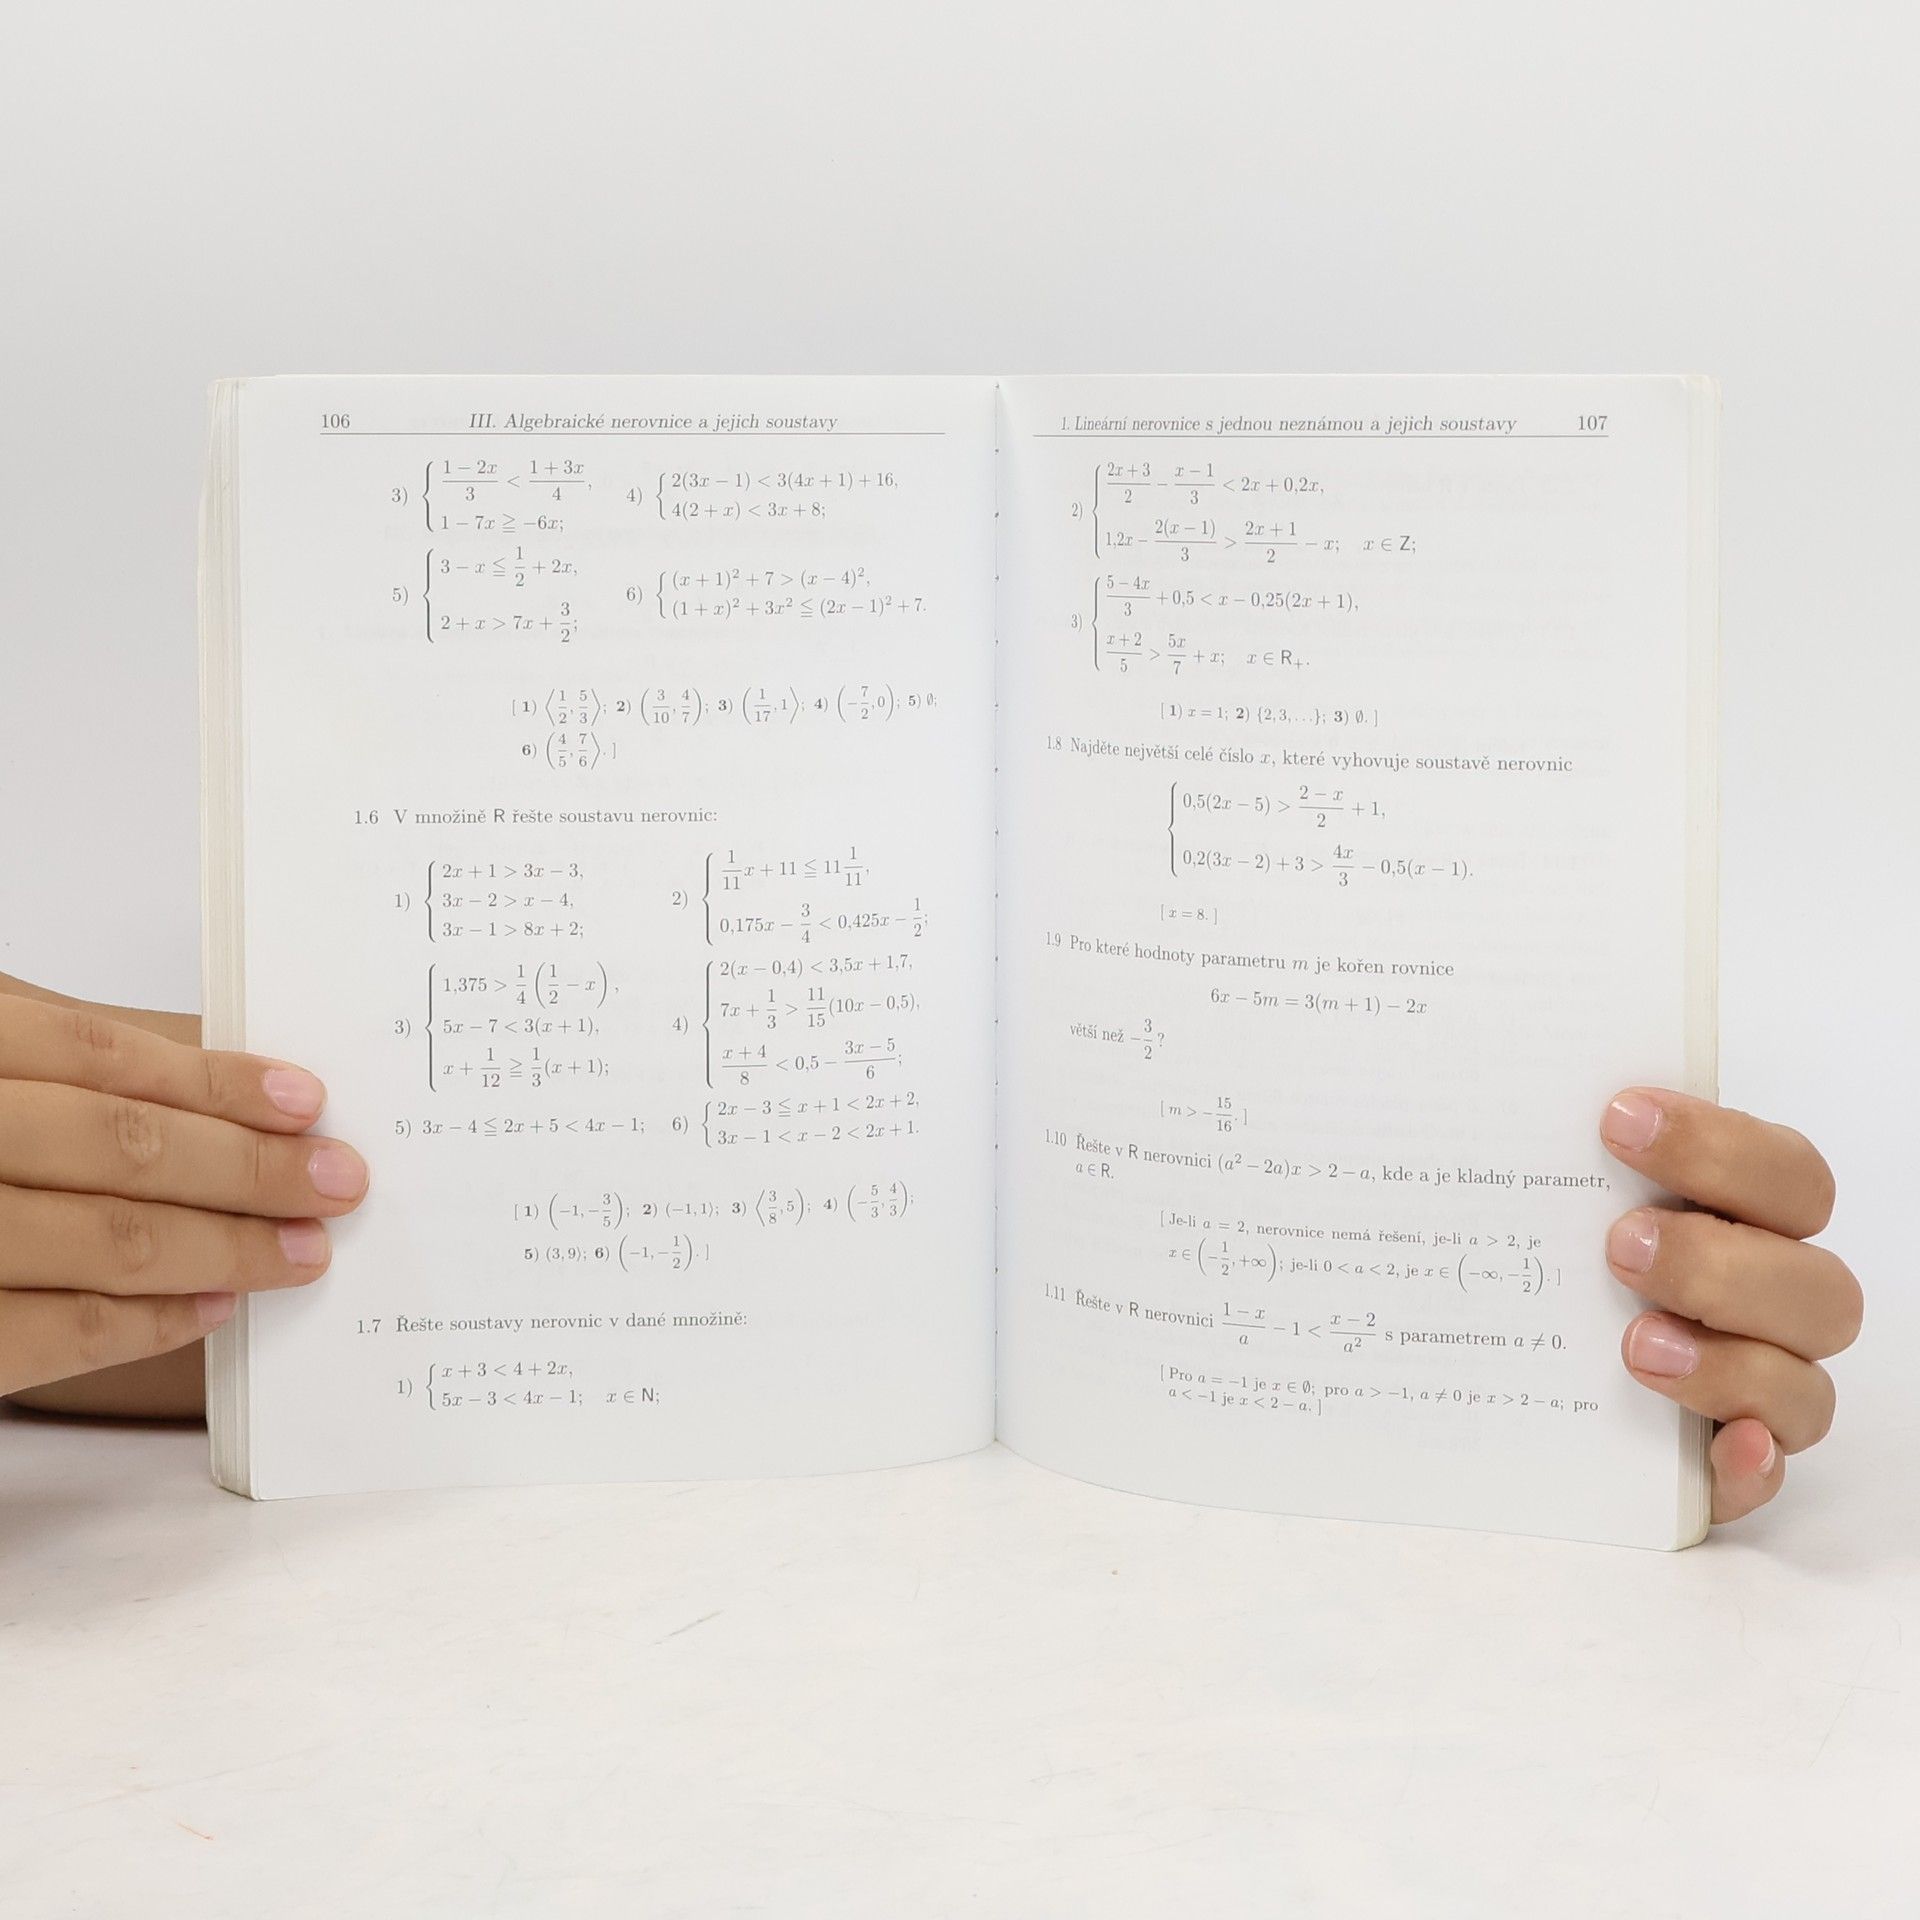 106 III. Algebraické nerovnice a jejich soustavy
3) { (1 − 2x)/3 < (1 + 3x)/4,
1 − 7x ≧ −6x;
4) { 2(3x − 1) < 3(4x + 1) + 16,
4(2 + x) < 3x + 8;
5) { 3 − x ≦ 1/2 + 2x,
2 + x > 7x + 3/2;
6) { (x + 1)² + 7 > (x − 4)²,
(1 + x)² + 3x² ≦ (2x − 1)² + 7.
[ 1) ⟨1/2, 5/3⟩; 2) (3/10, 4/7); 3) (1/17, 1⟩; 4) (−7/2, 0); 5) ∅;
6) (4/5, 7/6⟩. ]
1.6 V množině R řešte soustavu nerovnic:
1) { 2x + 1 > 3x − 3,
3x − 2 > x − 4,
3x − 1 > 8x + 2;
2) { 1/11 x + 11 ≦ 11 1/11,
0,175x − 3/4 < 0,425x − 1/2;
3) { 1,375 > 1/4 (1/2 − x),
5x − 7 < 3(x + 1),
x + 1/12 ≧ 1/3 (x + 1);
4) { 2(x − 0,4) < 3,5x + 1,7,
7x + 1/3 > 11/15 (10x − 0,5),
(x + 4)/8 < 0,5 − (3x − 5)/6;
5) 3x − 4 ≦ 2x + 5 < 4x − 1;
6) { 2x − 3 ≦ x + 1 < 2x + 2,
3x − 1 < x − 2 < 2x + 1.
[ 1) (−1, −3/5); 2) (−1, 1⟩; 3) ⟨3/8, 5); 4) (−5/3, 4/3);
5) (3, 9⟩; 6) (−1, −1/2). ]
1.7 Řešte soustavy nerovnic v dané množině:
1) { x + 3 < 4 + 2x,
5x − 3 < 4x − 1; x ∈ N;
1. Lineární nerovnice s jednou neznámou a jejich soustavy 107
2) { (2x + 3)/2 − (x − 1)/3 < 2x + 0,2x,
1,2x − 2(x − 1)/3 > (2x + 1)/2 − x; x ∈ Z;
3) { (5 − 4x)/3 + 0,5 < x − 0,25(2x + 1),
(x + 2)/5 > 5x/7 + x; x ∈ R₊.
[ 1) x = 1; 2) {2, 3, …}; 3) ∅. ]
1.8 Najděte největší celé číslo x, které vyhovuje soustavě nerovnic
{ 0,5(2x − 5) > (2 − x)/2 + 1,
0,2(3x − 2) + 3 > 4x/3 − 0,5(x − 1).
[ x = 8. ]
1.9 Pro které hodnoty parametru m je kořen rovnice
6x − 5m = 3(m + 1) − 2x
větší než −3/2?
[ m > −15/16. ]
1.10 Řešte v R nerovnici (a² − 2a)x > 2 − a, kde a je kladný parametr,
a ∈ R.
[ Je-li a = 2, nerovnice nemá řešení, je-li a > 2, je
x ∈ (−1/2, +∞); je-li 0 < a < 2, je x ∈ (−∞, −1/2). ]
1.11 Řešte v R nerovnici (1 − x)/a − 1 < (x − 2)/a² s parametrem a ≠ 0.
[ Pro a = −1 je x ∈ ∅; pro a > −1, a ≠ 0 je x > 2 − a; pro
a < −1 je x < 2 − a. ]